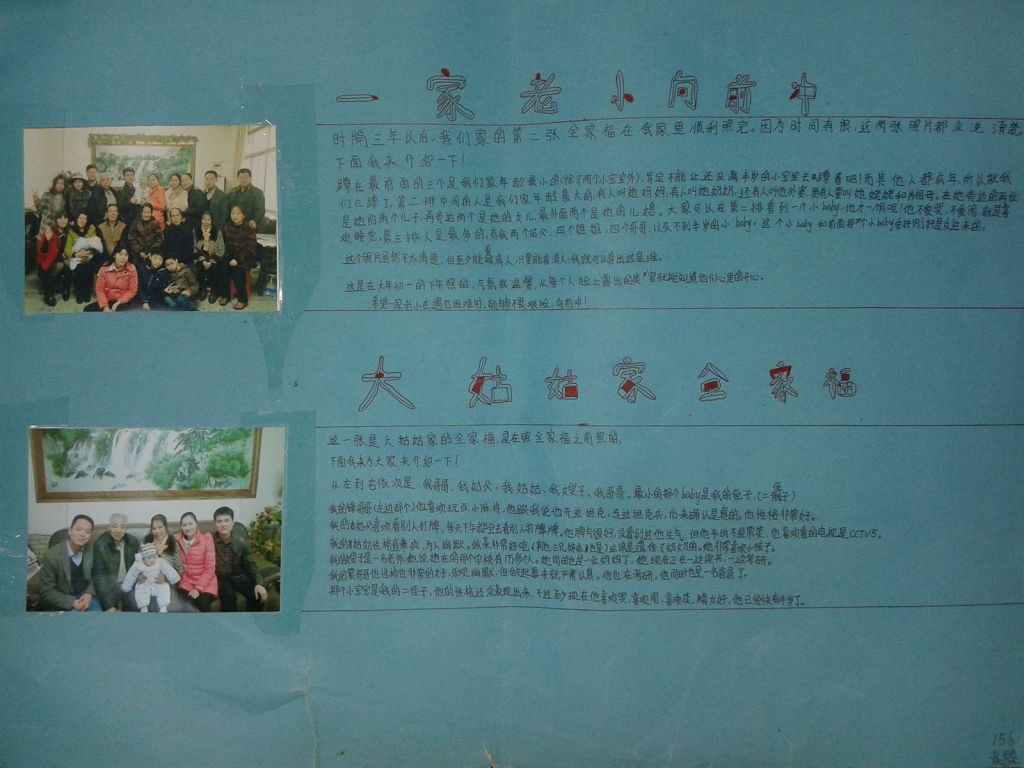 一家老小向前冲
时隔三年以后,我们家的第二张全家福在我家里顺利照完。因为时间有限,这两张照片都没洗清楚
下面我来介绍一下!
蹲在最前面的三个是我们家年龄最小的(除了两个小宝宝外),肯定不能让还没满半岁的小宝宝去蹲着吧!而其他人都成年,所以就我
们在蹲了。第二排中间的人是我们家年龄最大的,有人叫她妈妈,有人叫她奶奶,还有人叫他外婆,在她旁边的两位
是她的两个儿子,再旁边两个是她的女儿,最外面两个是他的儿媳。大家可以在第二排看到一个小baby,他才一个呢!他不爱哭,不爱闹,就是喜
欢睡觉,第三排人是最多的,有我两个姑父,四个姐姐,四个哥哥,以及不到半岁的小baby,这个小baby和前面那个小baby
这个照片虽然不太清楚,但至少能看清人,只要能看清人,我就可以看出这是谁。
这是在大年初一的下午照的,气氛很温馨,从每个人脸上露出的笑容就能知道他们心里的开心。
希望一家老小在遇见困难时,能够不畏艰险,向前冲!
大姑姑家全家福
这一张是大姑姑家的全家福,是在照全家福之前照的,
下面我来为大家来介绍一下!
从左到右依次是,我哥哥、我姑父,我姑姑、我嫂子、我哥哥。最小的那个baby是我的侄子,(二侄子)
我的哥哥(左边那个)他喜欢玩点小麻将,他跟我说他开过坦克,当过坦克兵,后来确认是真的。他性格非常好。
我的姑父喜欢看别人打牌,每天下午都会去看别人打牌,他脾气很好,没看到过他生气,但他平时不经常笑,他喜欢看的电视是CCTV5。
我的姑姑性格直爽,为人幽默。做菜非常好吃,应该是遗传了奶奶的。她非常喜欢小孩子。
我的嫂子是一名老师,她说她在的那个学校有1万多人。她同时也是一位妈妈了。她现在正在一边读书,一边考研。
我的哥哥他性格也非常的好,乐观幽默,但做起事来就严肃认真。他也在考研,他同时也是一名爸爸了。
那个小宝宝是我的二侄子,他的性格还没表现出来,不过至少现在他喜欢哭,喜欢闹,喜欢笑,精力好,他已经快有半岁了。
156